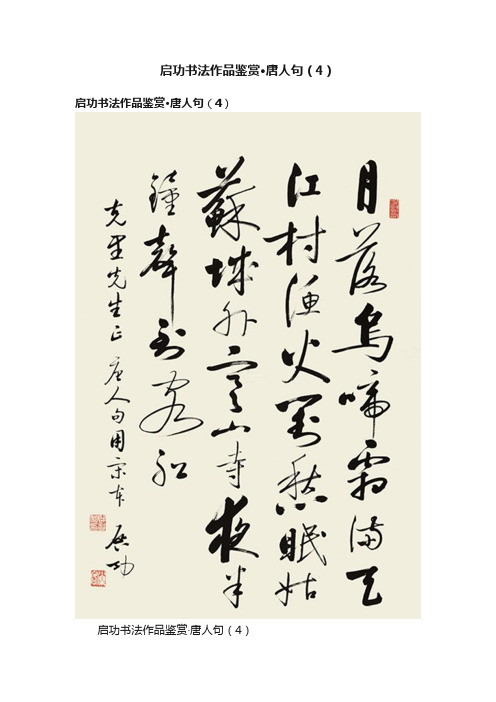 启功书法作品鉴赏•唐人句（4）
启功书法作品鉴赏•唐人句（4）
月落烏啼霜滿天
江村漁火對愁眠姑
蘇城外寒山寺夜半
鐘聲到客船
先生正 唐人句用宋本 启功
启功书法作品鉴赏·唐人句（4）